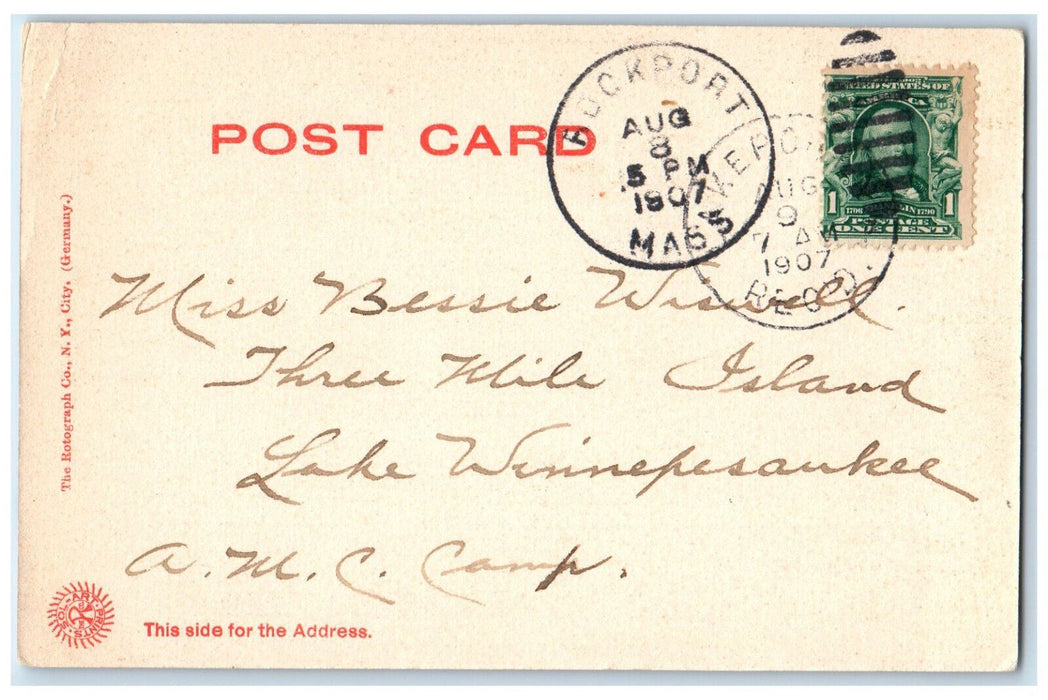 POST CARD
ROCKPORT
AUG
8
5 PM
1907
MASS
AUG
9
7 AM
1907
REC'D.
UNITED STATES OF
1 1706 1790 1
POSTAGE
ONE CENT
Miss Bessie Wiswell.
Three Mile Island
Lake Winnepesaukee
A. M. C. Camp.
The Rotograph Co., N. Y., City. (Germany.)
SOL-ART-PRINTS
This side for the Address.